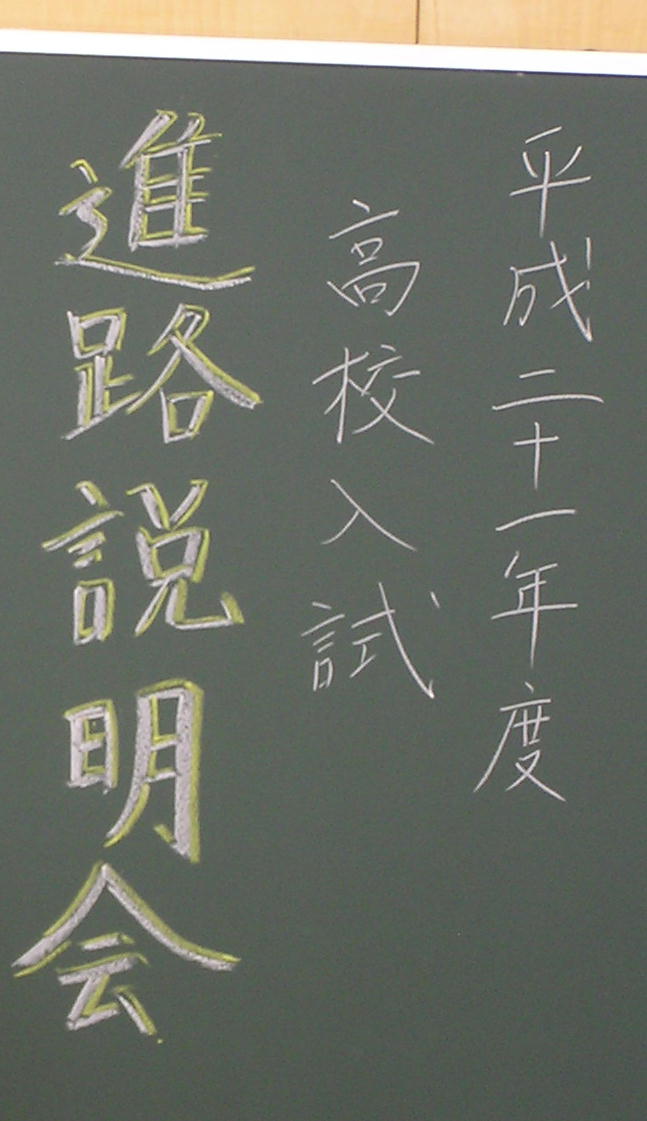 平成二十一年度
高校入試
進路説明会